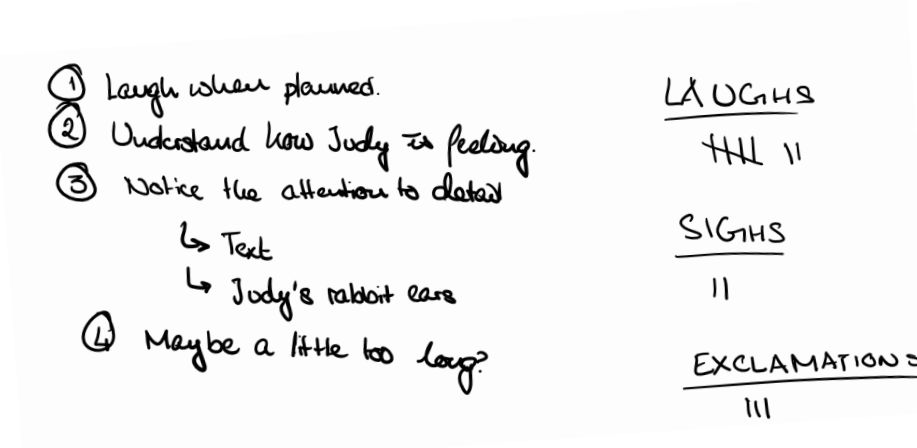 ① Laugh when planned.
② Understand how Judy is feeling.
③ Notice the attention to detail
↳ Text
↳ Judy's rabbit ears
④ Maybe a little too long?
LAUGHS
𝍸 II
SIGHS
II
EXCLAMATIONS
III